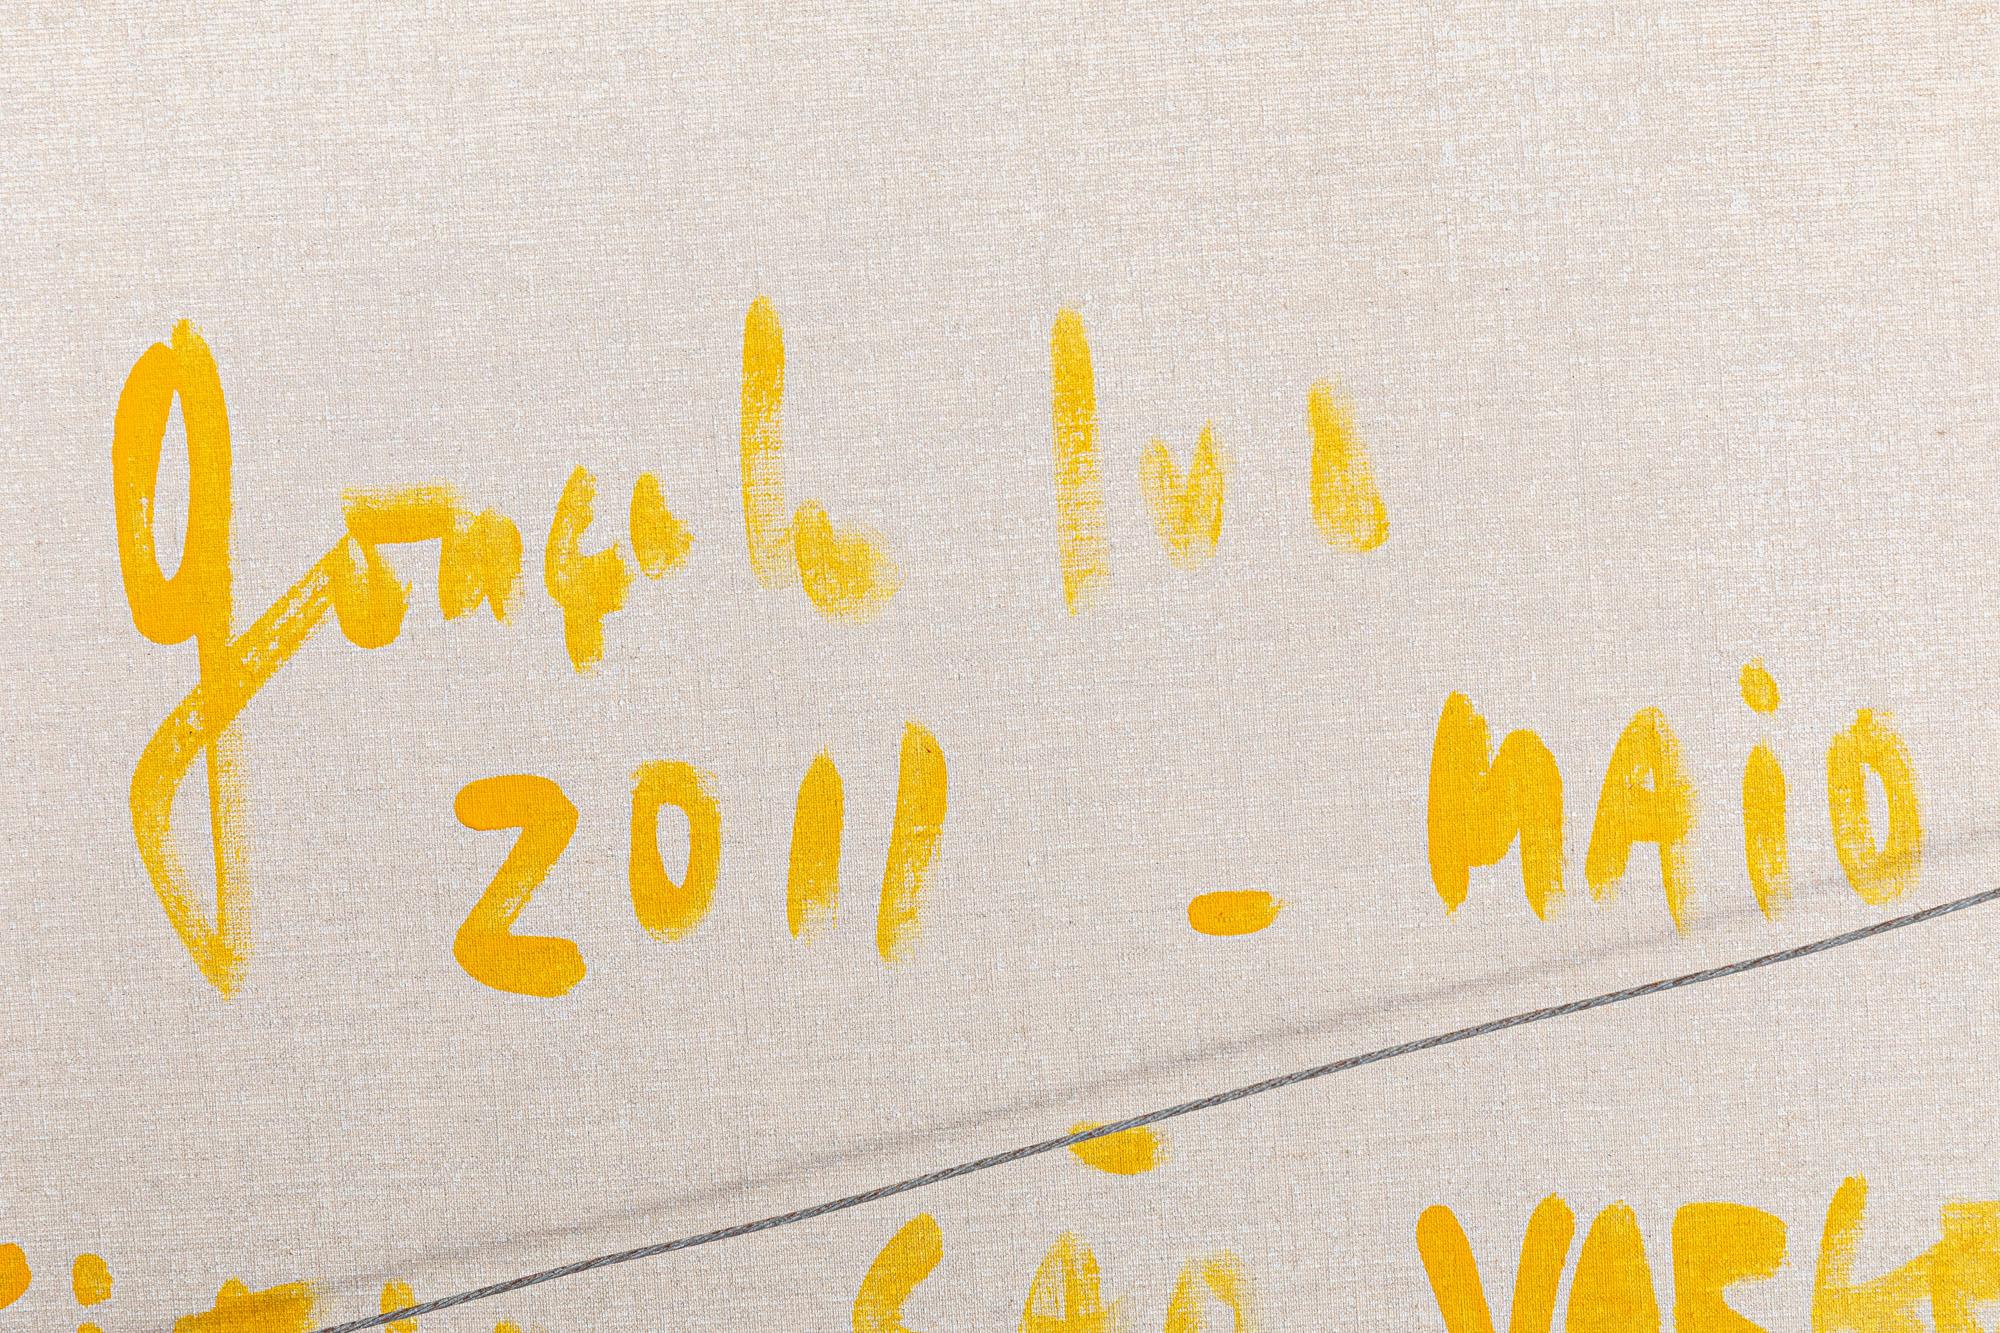 Gonçalo Ivo
2011 - MAIO
SÃO